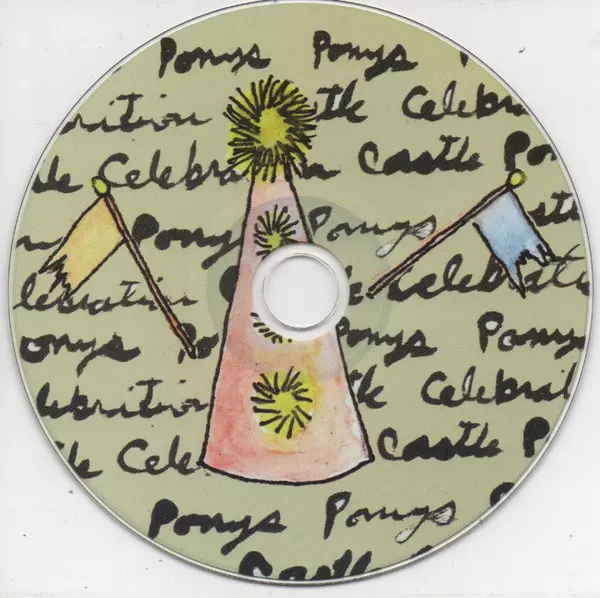 Ponys Ponys P
brition stle Celebra
tle Celebra n Castle Pon
Ponys Ponys stl
elebration Celebrati
onys Po Ponys Ponys
lebrition tle Celebrat
tle Cele Castle P
Ponys Ponys
Castle